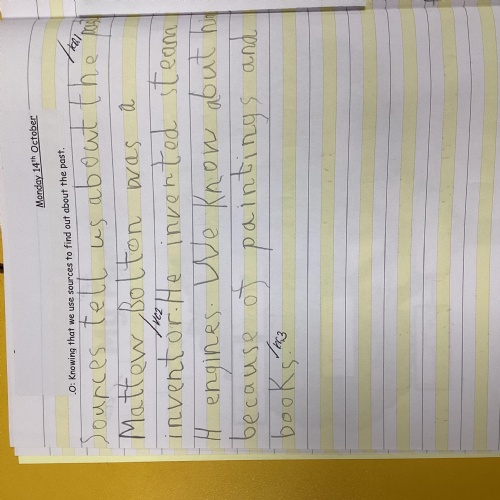 Monday 14th October
.O: Knowing that we use sources to find out about the past.
Sources tell us about the past
Mattew Bolton was a
inventor. He invented steam
H engines. We know about hi
because of paintings and
books.